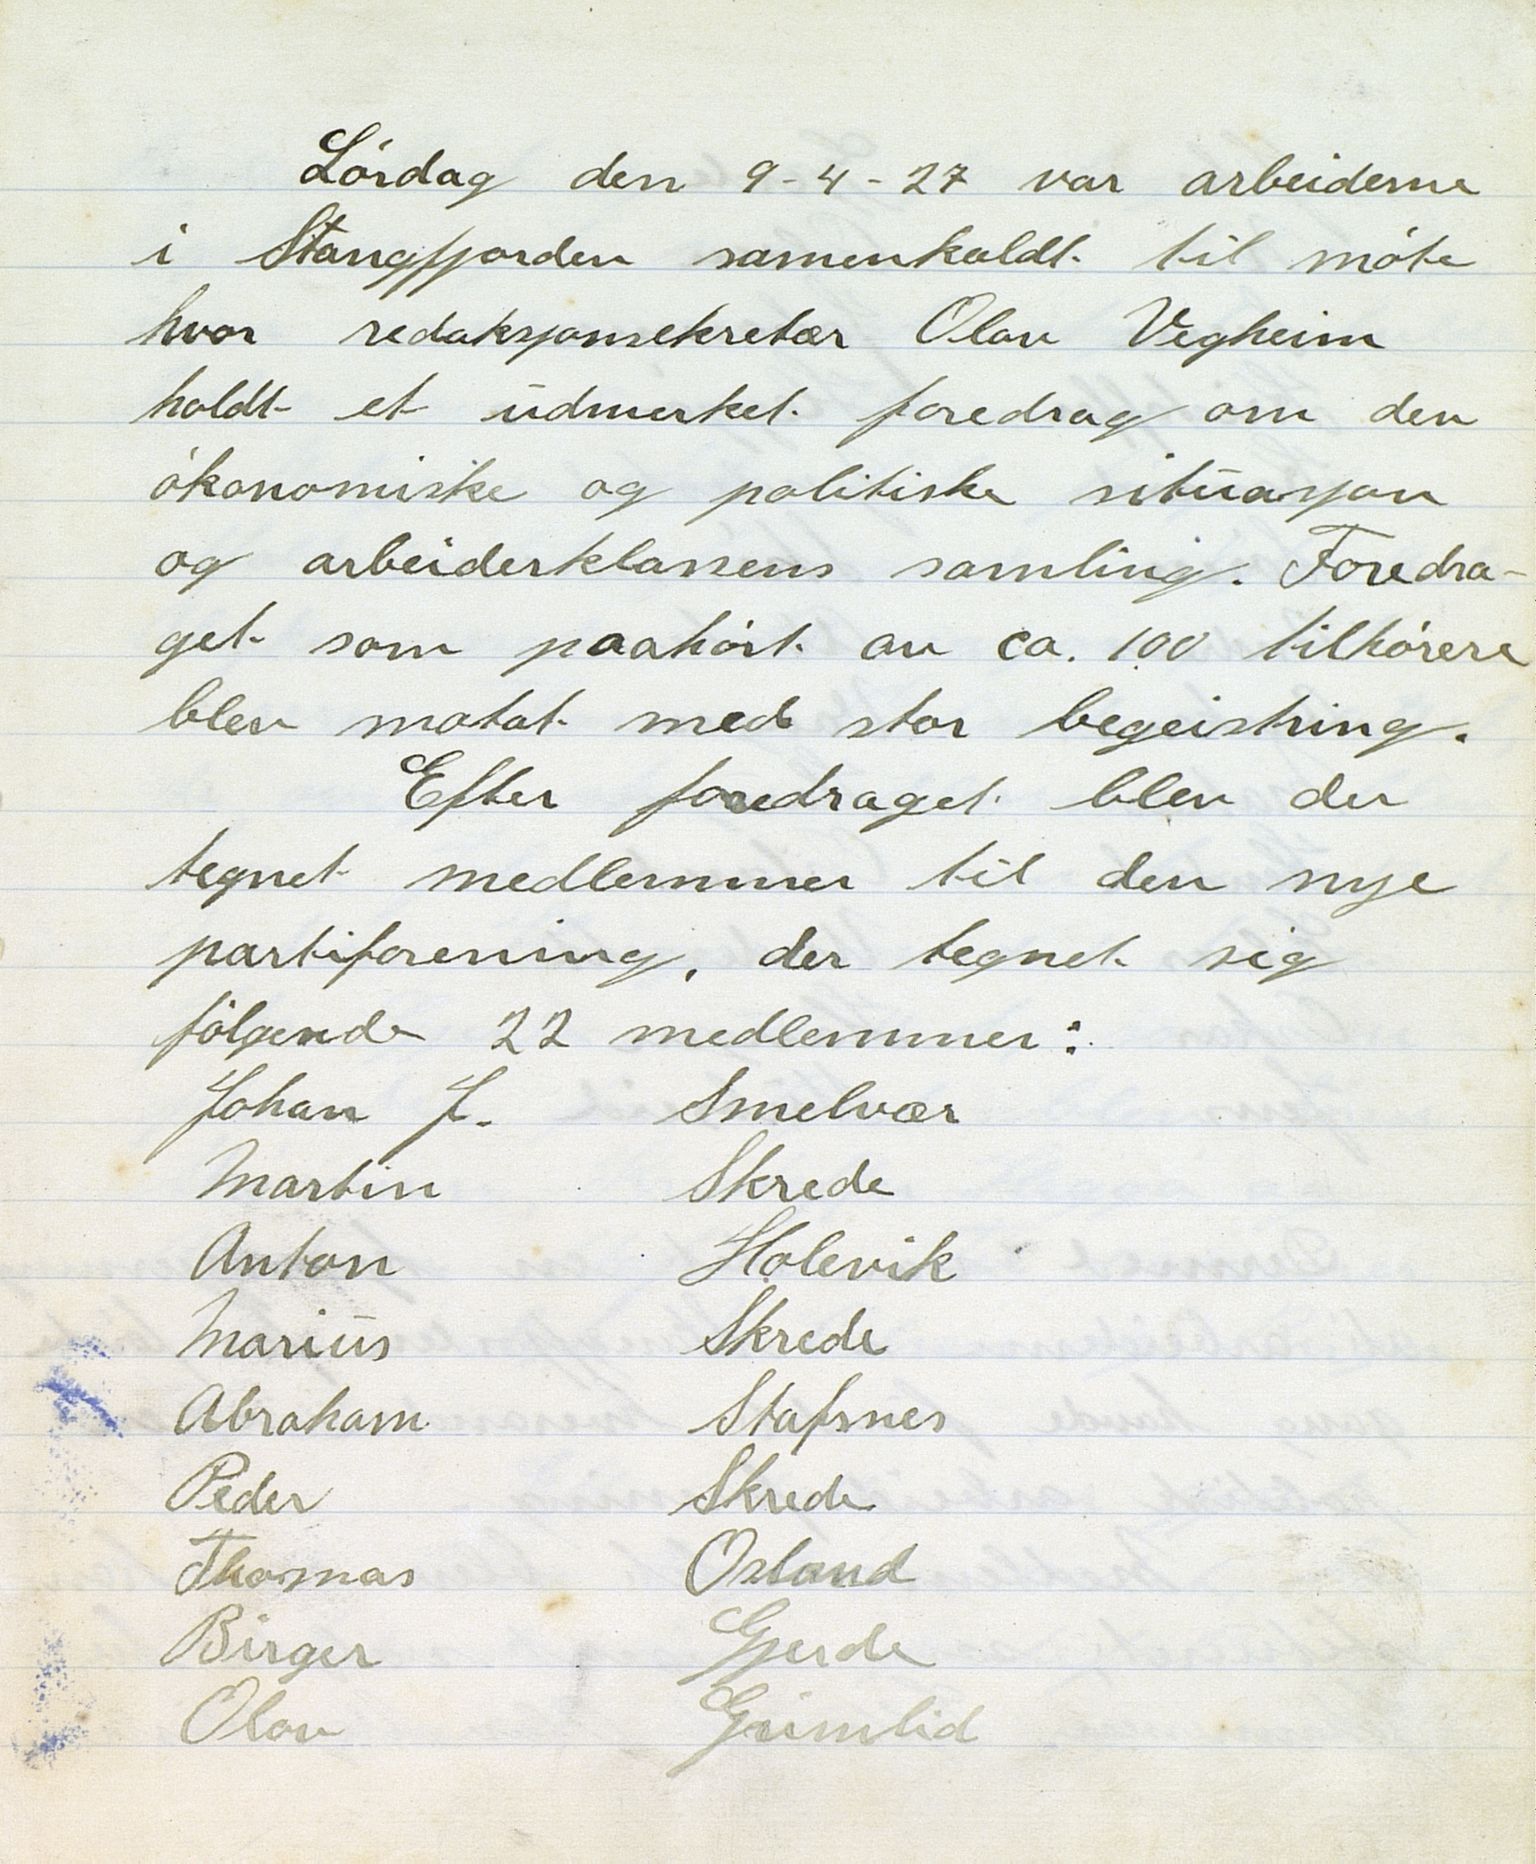 Lórdag den 9-4-27 var arbeiderne
i Stangfjorden samenkaldt til móte
hvor redaksjonsekretær Olav Vegheim
holdt et udmerket foredrag om den
ókonomiske og politiske situasjon
og arbeiderklassens samling. Foredra-
get som paahórt av ca. 100 tilhórere
blev motat med stor begeistring.
Efter foredraget blev der
tegnet medlemmer til den nye
partiforening, der tegnet sig
fólgende 22 medlemmer:
Johan J. Smelvær
Martin Skrede
Anton Holevik
Marius Skrede
Abraham Stafsnes
Peder Skrede
Thomas Osland
Birger Gjerde
Olav Grimlid